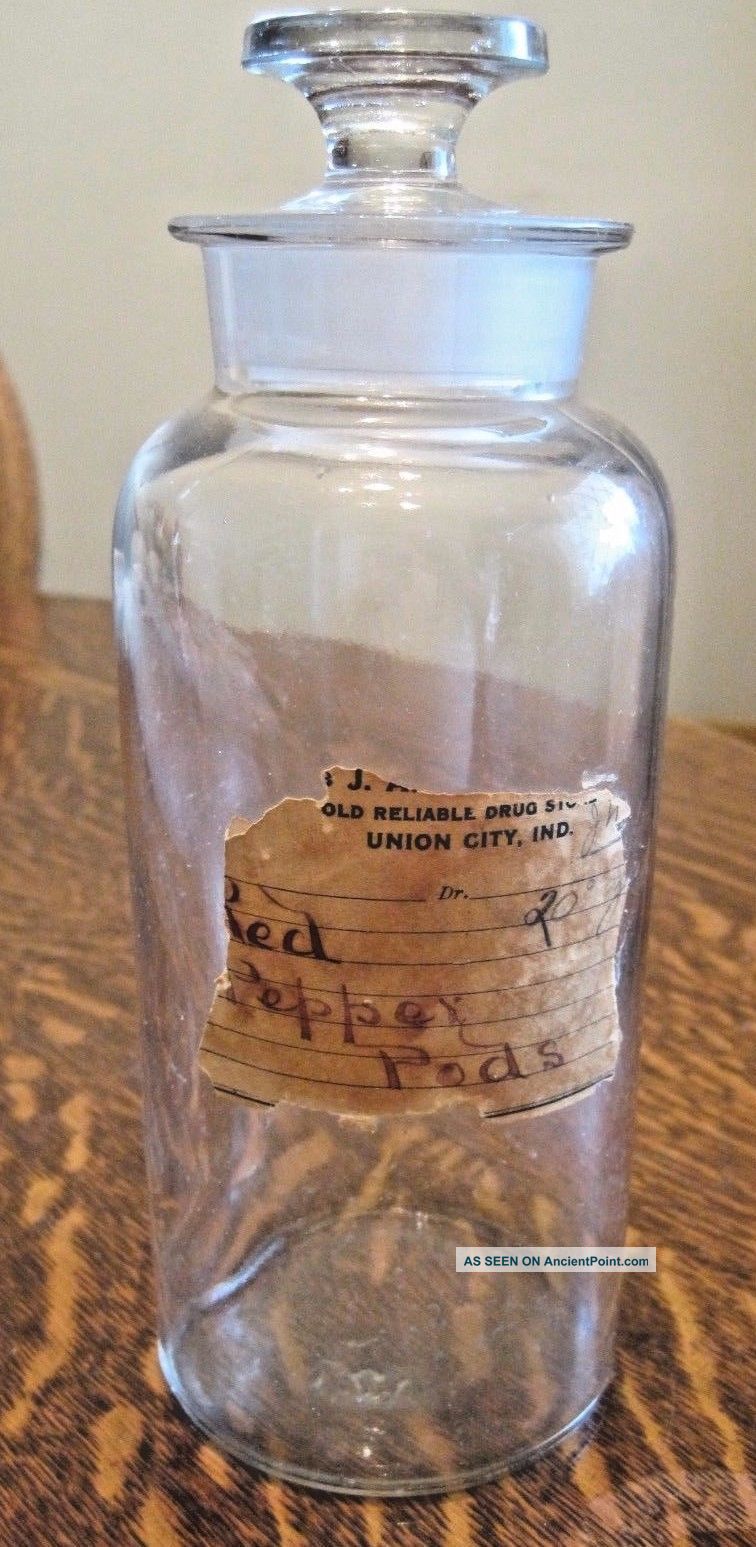 J. A.
OLD RELIABLE DRUG
UNION CITY, IND.
Dr.
20
Red
Pepper
Pods
AS SEEN ON AncientPoint.com